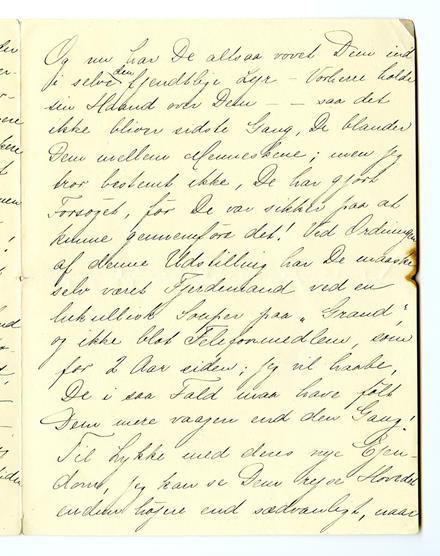 Og nu har De altsaa vovet Dem ind
i selve den fjendtlige Lejr – Vorherre holde
sin Haand over Dem – – saa det
ikke bliver sidste Gang, De blander
Dem mellem Menneskene; men jeg
tror bestemt ikke, De har gjort
Forsøget, før De var sikker paa at
kunne gennemføre det! Ved Ordningen
af denne Udstilling har De maaske
selv været Fjerdemand ved en
lukullisk Souper paa „Grand",
og ikke blot Telefonmedlem, som
for 2 Aar siden; jeg vil haabe,
De i saa Fald maa have følt
Dem mere vaagen end den Gang!
Til Lykke med deres nye Ejen-
dom, jeg kan se Dem rejse Hovedet
endnu højere end sædvanligt, naar